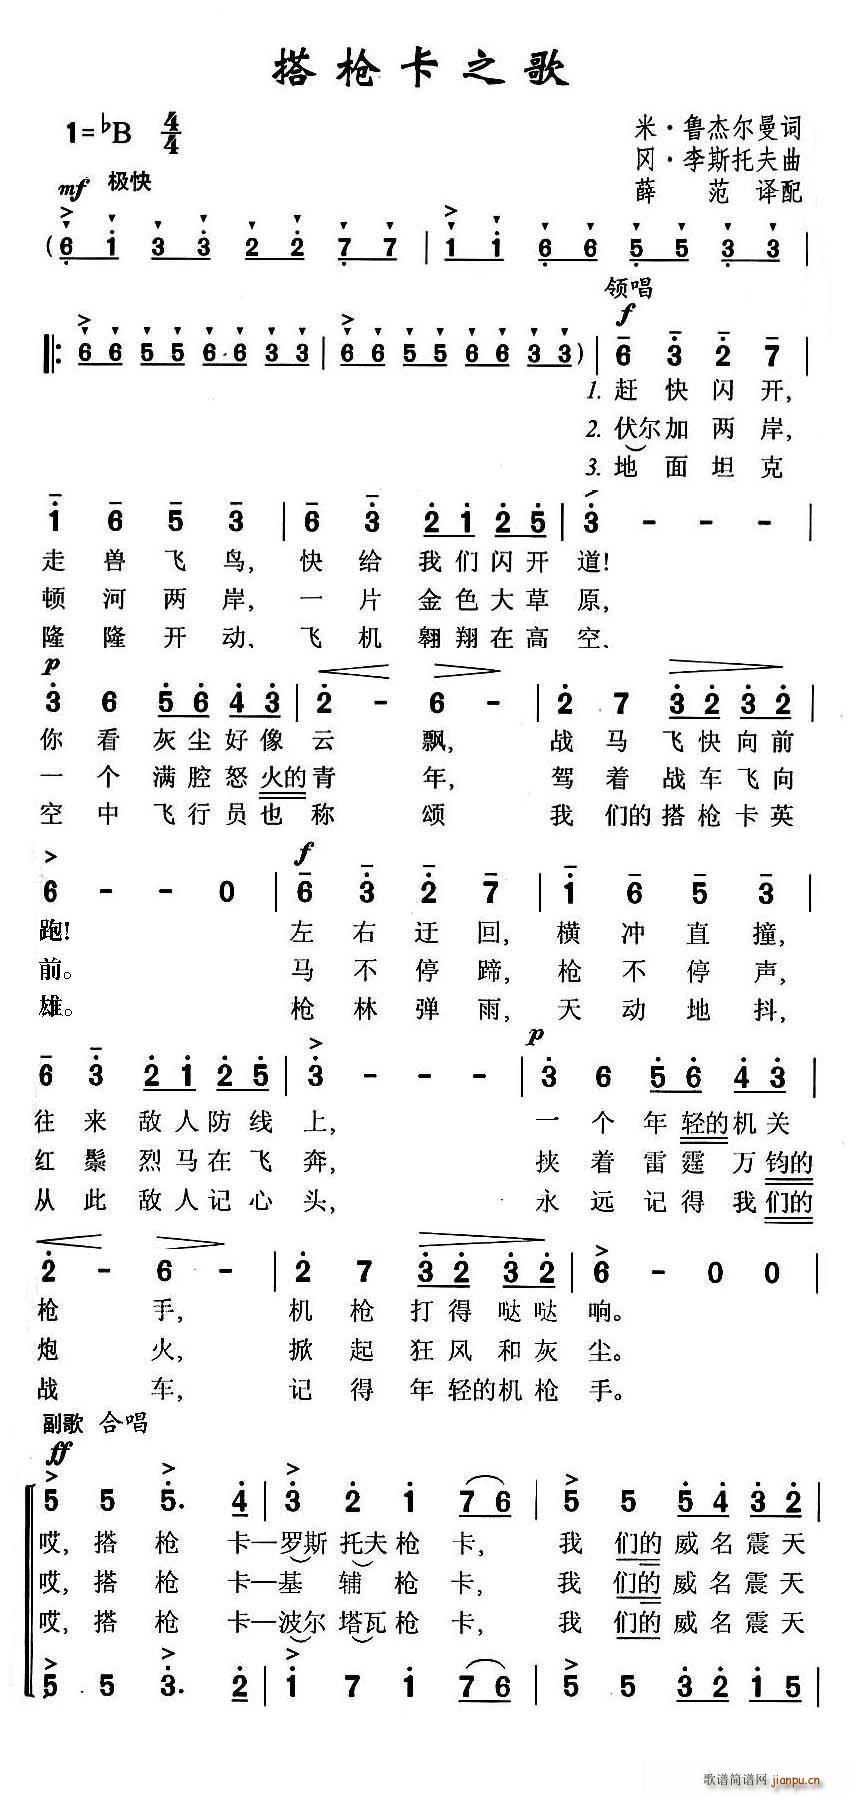 搭枪卡之歌
1=♭B 4/4
米·鲁杰尔曼词
冈·李斯托夫曲
薛 范 译配
mf 极快
(6 1 3 3 2 2 7 7 | 1 1 6 6 5 5 3 3 |
领唱
f
|: 6 6 5 5 6 6 3 3 | 6 6 5 5 6 6 3 3) | 6 3 2 7 |
1. 赶快闪开,
2. 伏尔加两岸,
3. 地面坦克
1 6 5 3 | 6 3 2 1 2 5 | 3 - - - |
走兽飞鸟, 快给我们闪开道!
顿河两岸, 一片金色大草原,
隆隆开动, 飞机翱翔在高空,
p
3 6 5 6 4 3 | 2 - 6 - | 2 7 3 2 3 2 |
你看灰尘好像云飘, 战马飞快向前
一个满腔怒火的青年, 驾着战车飞向
空中飞行员也称颂 我们的搭枪卡英
f
6 - - 0 | 6 3 2 7 | 1 6 5 3 |
跑! 左右迂回, 横冲直撞,
前。 马不停蹄, 枪不停声,
雄。 枪林弹雨, 天动地抖,
p
6 3 2 1 2 5 | 3 - - - | 3 6 5 6 4 3 |
往来敌人防线上, 一个年轻的机关
红鬃烈马在飞奔, 挟着雷霆万钧的
从此敌人记心头, 永远记得我们的
2 - 6 - | 2 7 3 2 3 2 | 6 - 0 0 |
枪手, 机枪打得哒哒响。
炮火, 掀起狂风和灰尘。
战车, 记得年轻的机枪手。
副歌 合唱
ff
5 5 5. 4 | 3 2 1 7 6 | 5 5 5 4 3 2 |
哎, 搭枪卡—罗斯托夫枪卡, 我们的威名震天
哎, 搭枪卡—基辅枪卡, 我们的威名震天
哎, 搭枪卡—波尔塔瓦枪卡, 我们的威名震天
5 5 3. 2 | 1 7 1 7 6 | 5 5 3 2 1 5 |
歌谱简谱网 jianpu.cn